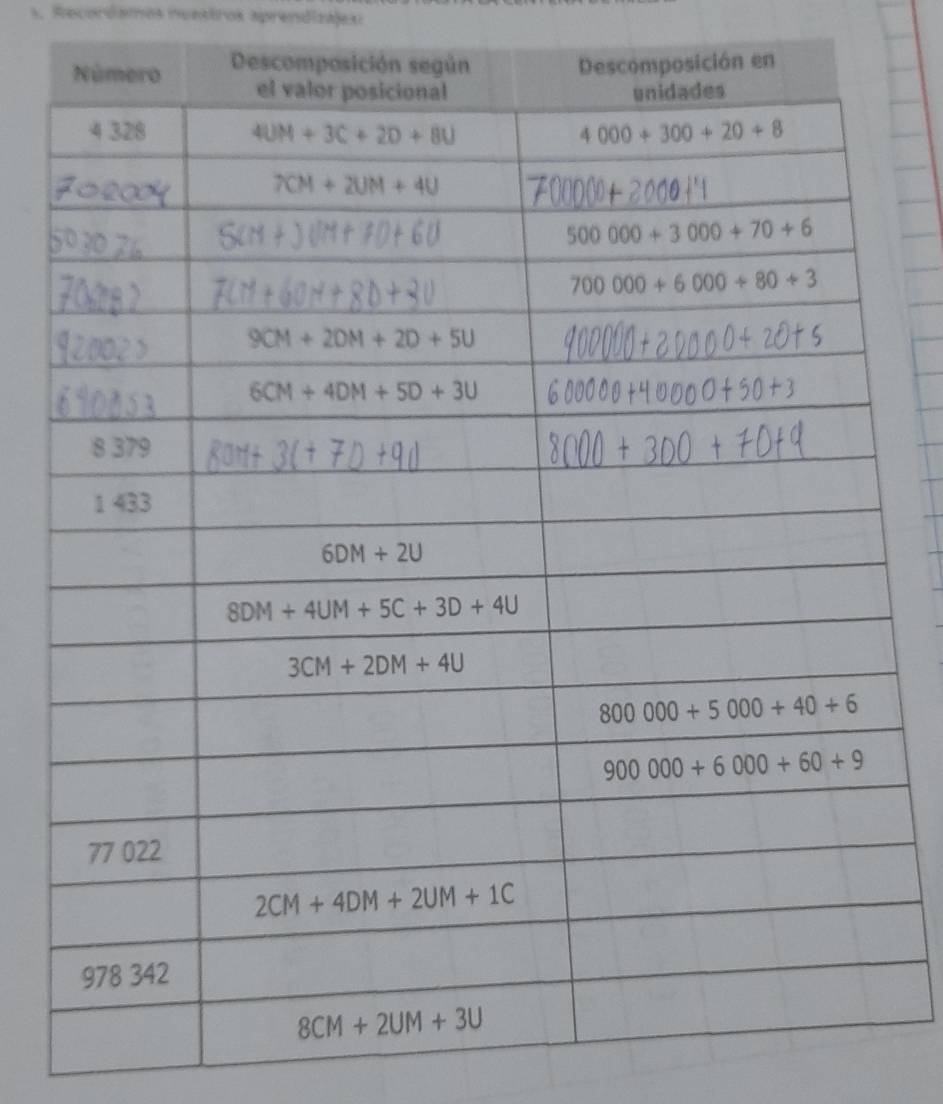 Recordamos nuestros aprendizajes:
Número Descomposición según el valor posicional Descomposición en unidades
4 328 4UM + 3C + 2D + 8U 4 000 + 300 + 20 + 8
702004 7CM + 2UM + 4U 700000+2000+4
503076 5CM+3UM+7D+6U 500 000 + 3 000 + 70 + 6
7CM+6UM+8D+3U 700 000 + 6 000 + 80 + 3
920025 9CM + 2DM + 2D + 5U 900000+20000+20+5
6CM + 4DM + 5D + 3U 600000+40000+50+3
8 379 3C+7D+9U 8000+300+70+9
1 433
6DM + 2U
8DM + 4UM + 5C + 3D + 4U
3CM + 2DM + 4U
800 000 + 5 000 + 40 + 6
900 000 + 6 000 + 60 + 9
77 022
2CM + 4DM + 2UM + 1C
978 342
8CM + 2UM + 3U